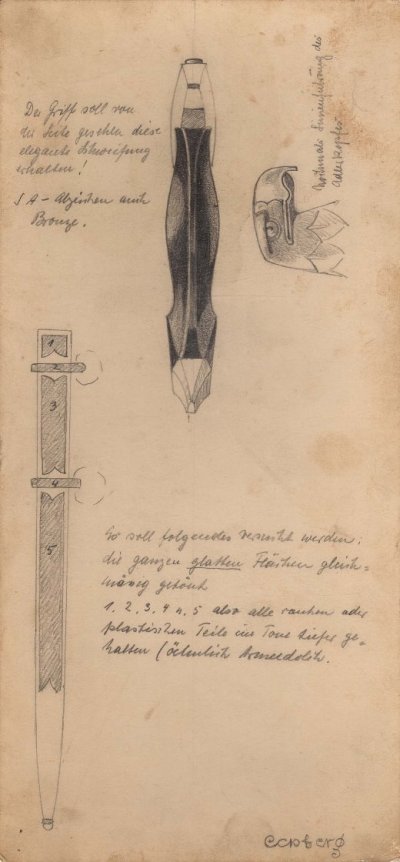 Der Griff soll von
der Seite gesehen diese
elegante Schweifung
erhalten!
SA - Abzeichen auch
Bronze.
Nochmals Linienführung des
Adlerkopfes
1
2
3
4
5
Es soll folgendes versucht werden:
die ganzen glatten Flächen gleich=
mässig getönt
1, 2, 3, 4 u, 5 also alle rauhen oder
plastischen Teile im Tone tiefer ge=
halten (ähnlich Armeedolch.